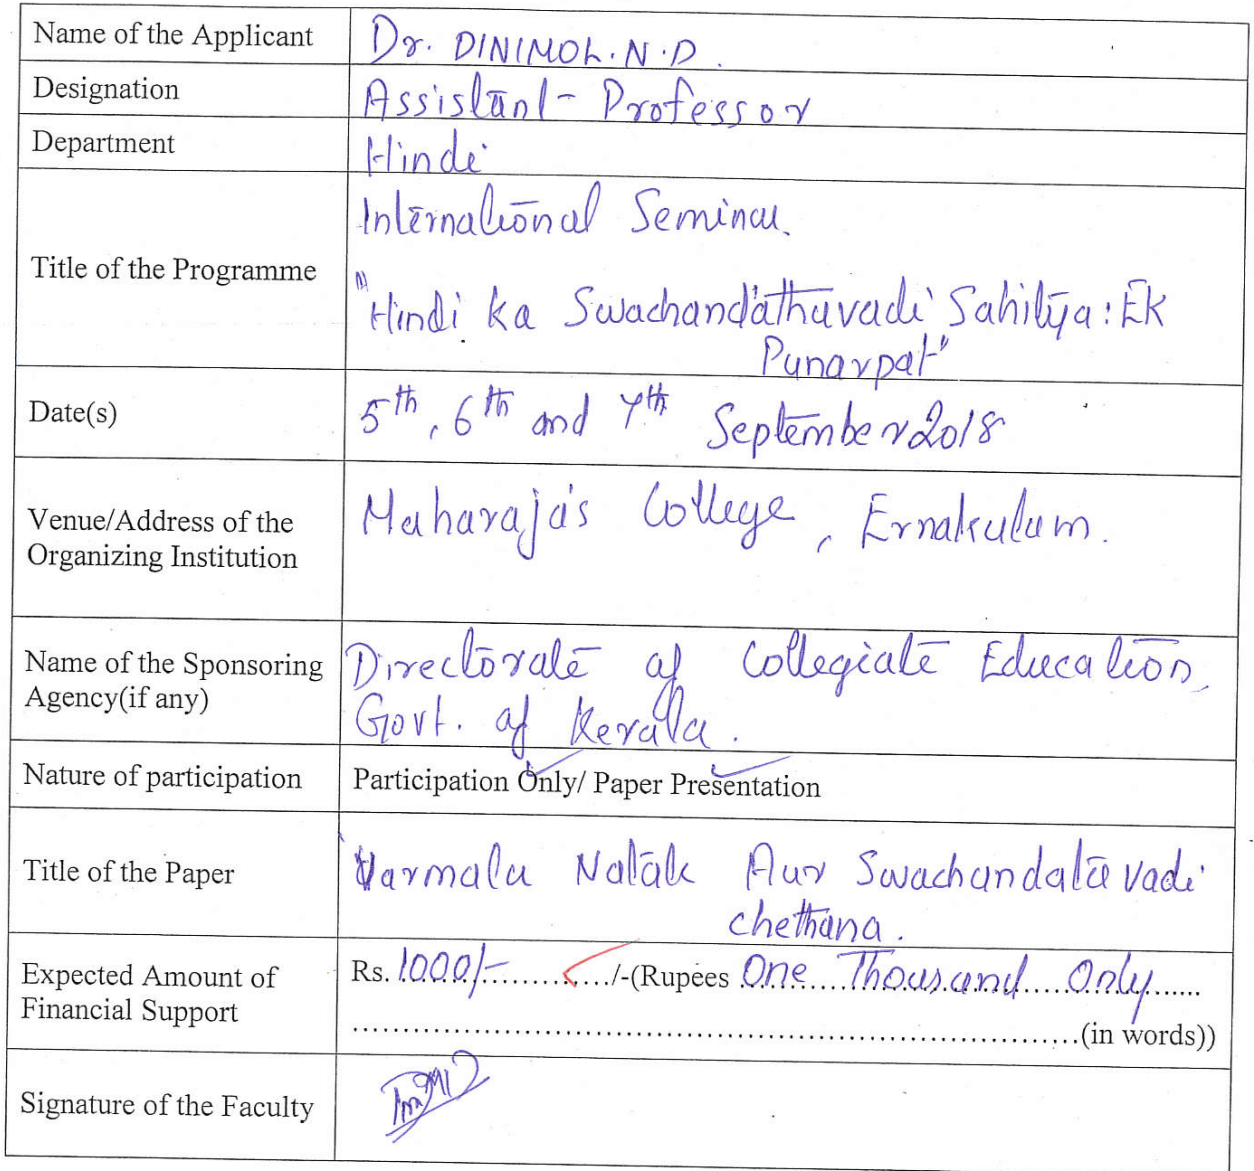 Name of the Applicant
Dr. DINIMOL.N.D.
Designation
Assistant - Professor
Department
Hindi
Title of the Programme
International Seminar.
"Hindi ka Swachandathuvadi Sahitya: Ek
Punarpat"
Date(s)
5th, 6th and 7th September 2018
Venue/Address of the
Organizing Institution
Maharaja's College, Ernakulum.
Name of the Sponsoring
Agency(if any)
Directorate of Collegiate Education,
Govt. of Kerala.
Nature of participation
Participation Only/ Paper Presentation
Title of the Paper
Varmala Natak Aur Swachandatavadi
chethana.
Expected Amount of
Financial Support
Rs. 1000/-............/-(Rupees One Thousand Only......
........................................................................(in words))
Signature of the Faculty